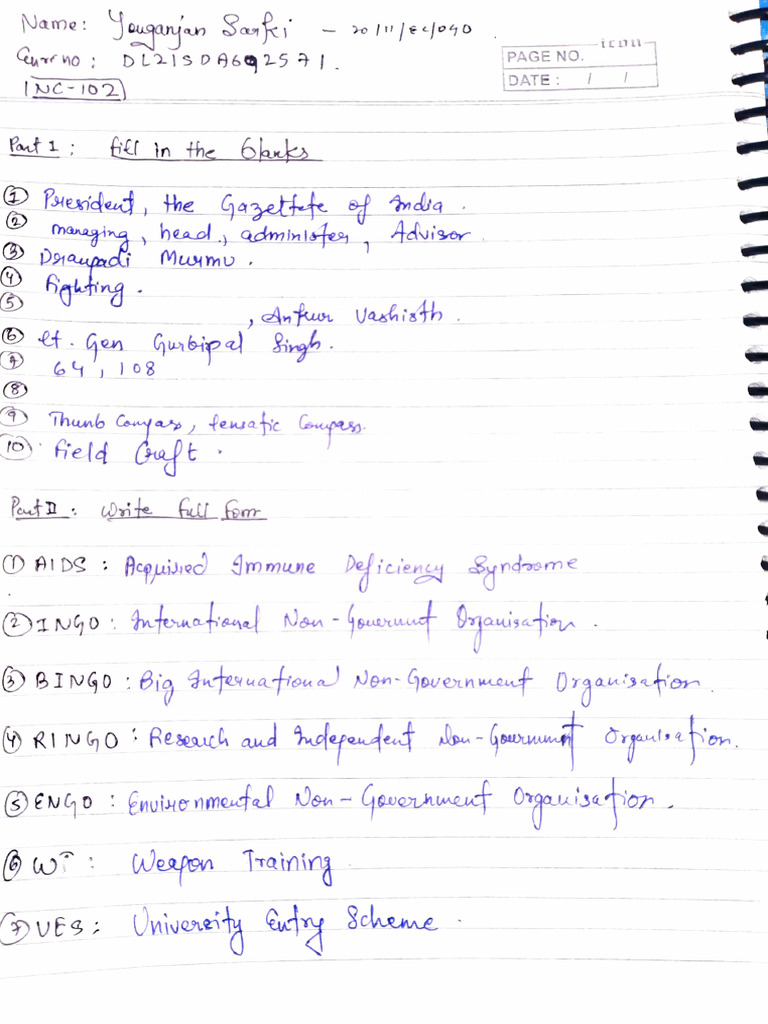 Name: Youganjan Sarki - 20/11/EC/040.
icon
PAGE NO.
DATE : / /
Curr no : DL21SDA692571.
INC-102
Part 1 : fill in the blanks
① President, the Gazettete of India.
② managing, head, administer, Advisor
③ Draupadi Murmu.
④ fighting.
⑤ , Ankur Vashisth.
⑥ Lt. Gen Gurbirpal Singh.
⑦ 64, 108
⑧
⑨ Thunb Compass, lensatic Compass.
⑩ field Craft.
Part II : Write full form
① AIDS : Acquired Immune Deficiency Syndrome
② INGO : International Non-Government Organisation.
③ BINGO : Big International Non-Government Organisation.
④ RINGO : Research and Independent Non-Government Organisation.
⑤ ENGO : Environmental Non-Government Organisation.
⑥ WT : Weapon Training
⑦ UES : University Entry Scheme.